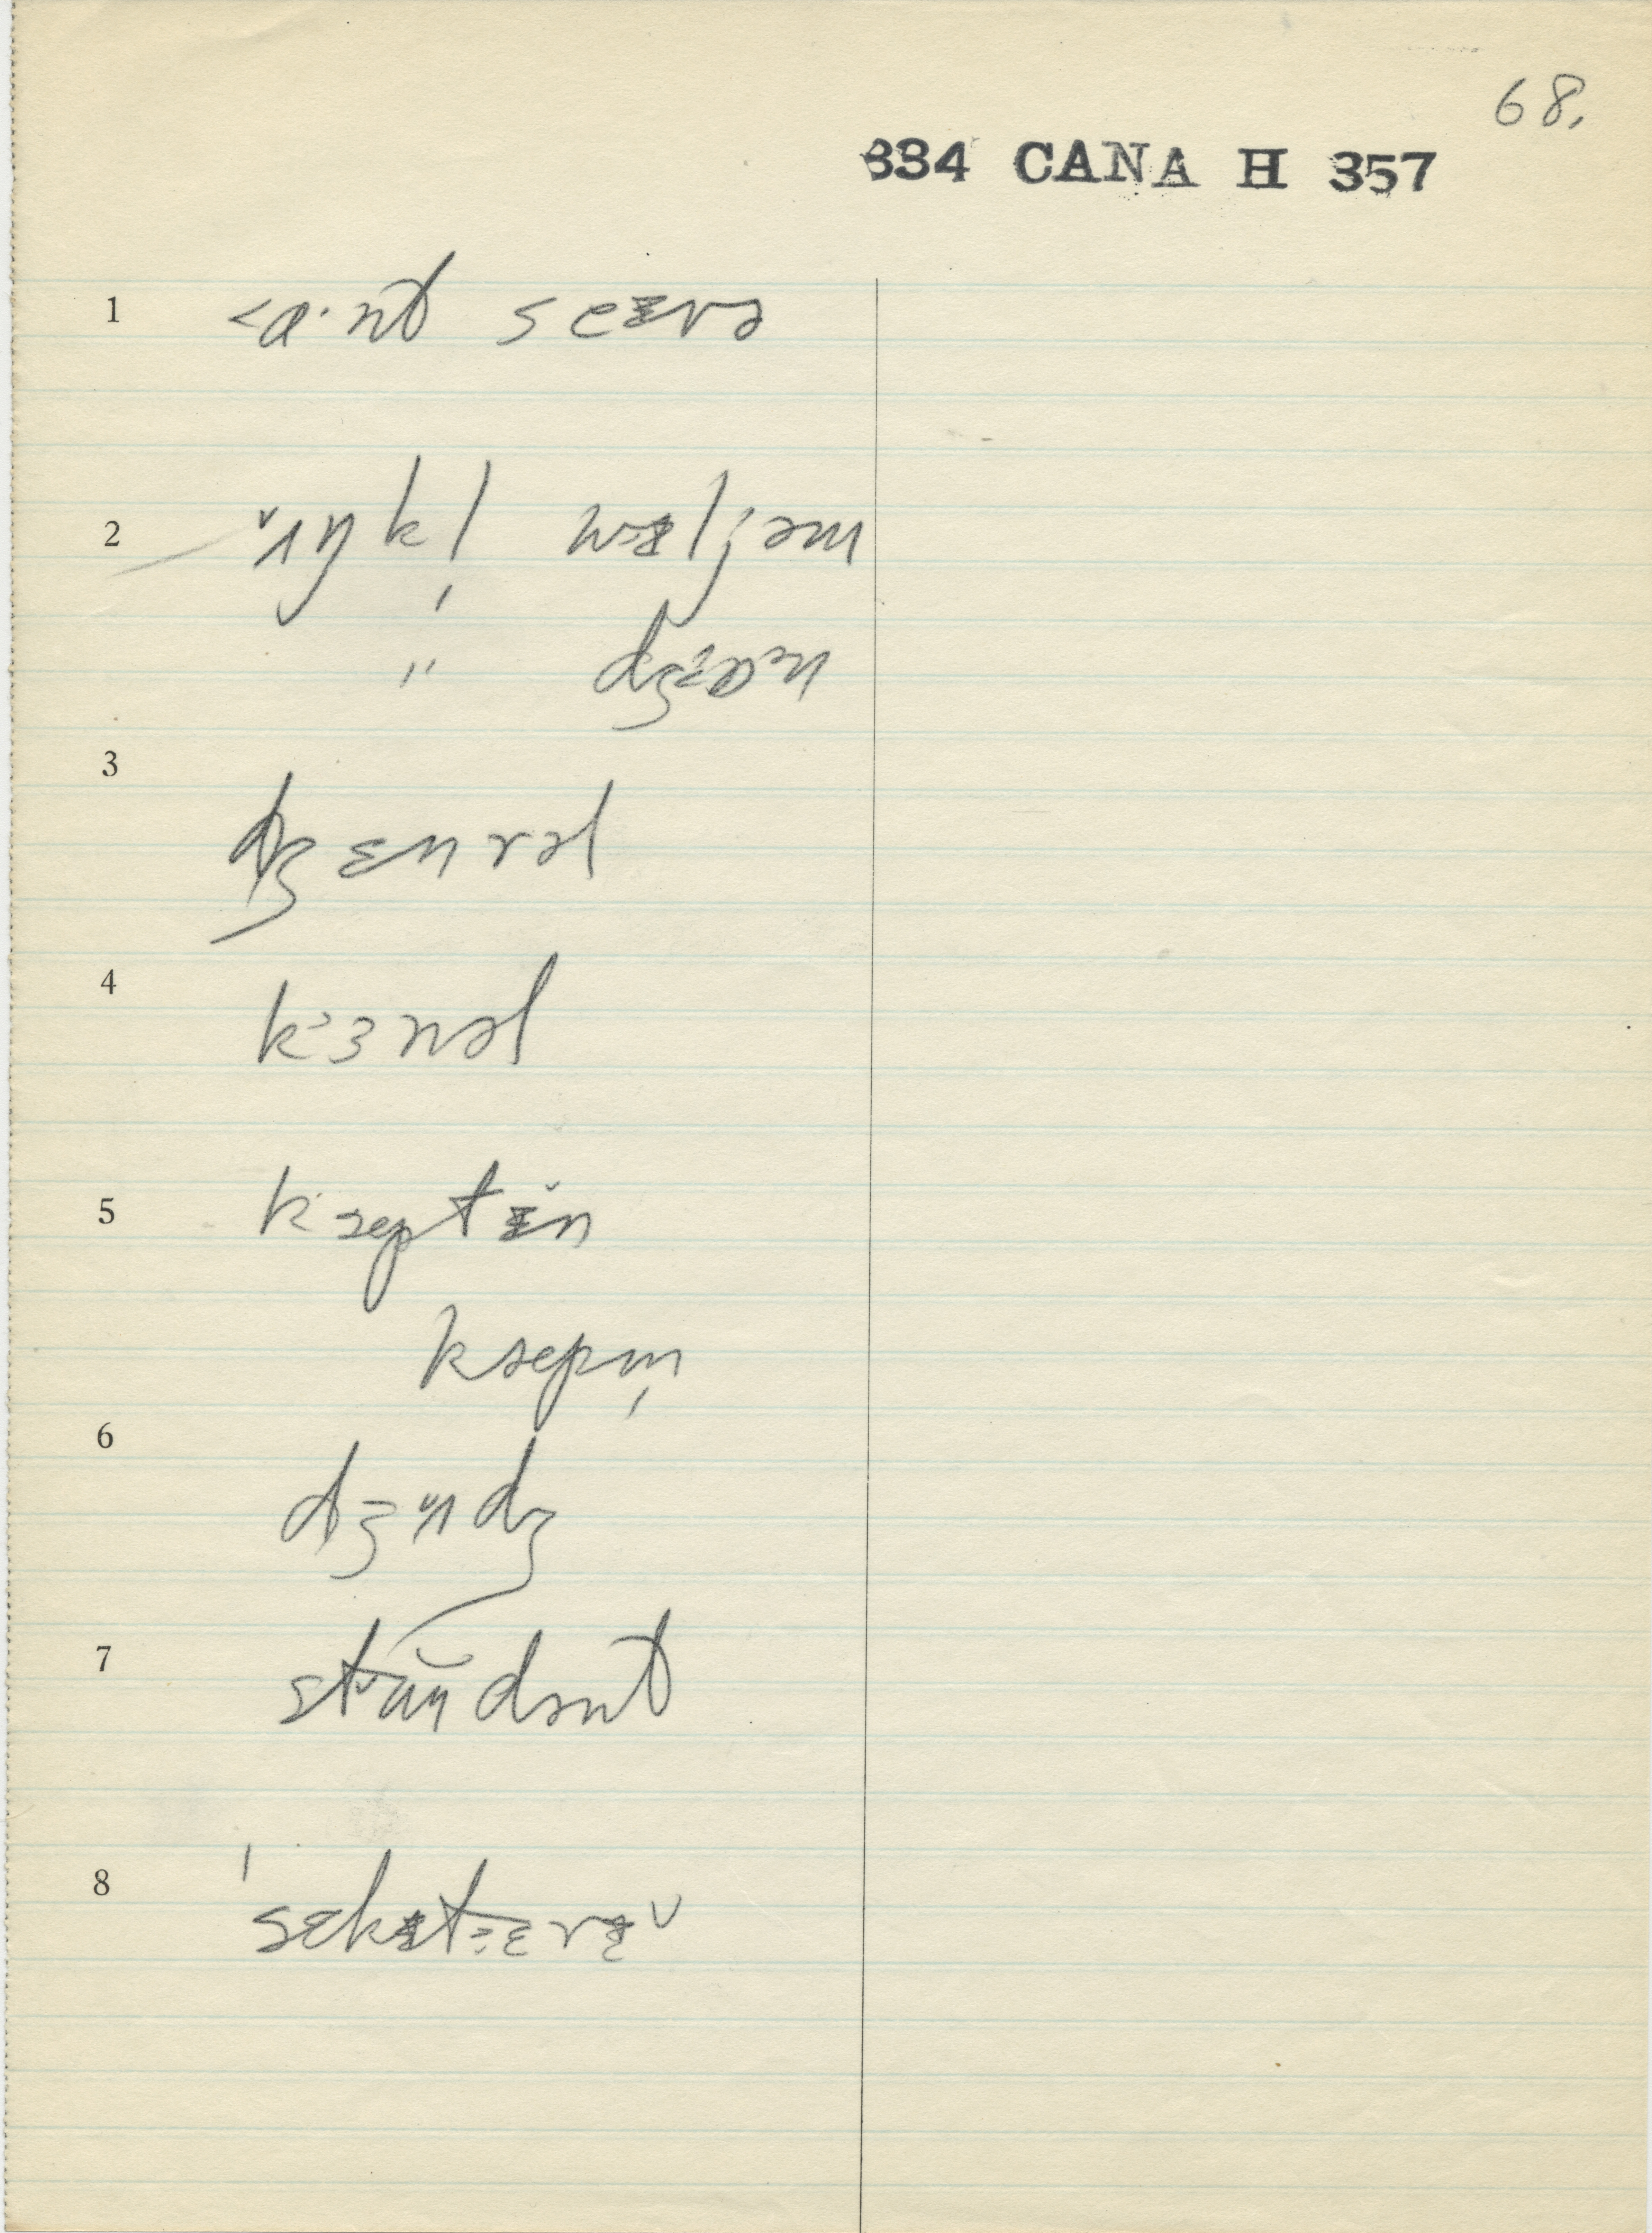 68.
334 CANA H 357
1 <ɑ·nt seᵻrə
2 ˇʌŋkl̩ wᵻljəm
" dʒɒˑn
3 dʒɛnrəl
4 k˒ɜnəl
5 k˒æptᵻ̆n
kæpm̩
6 dʒʌdʒ
7 stᵿu̯dənt
8 ˈsɛkᵻtɛrᵻ˅